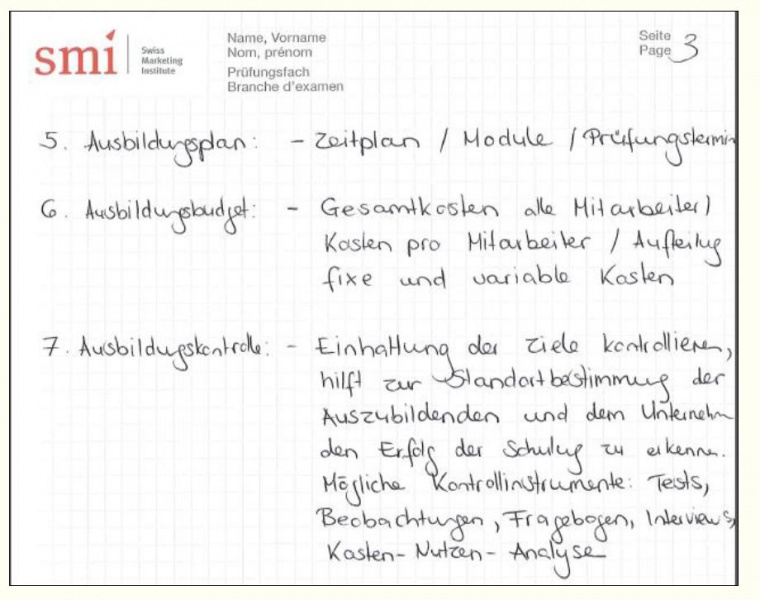 smi
Swiss
Marketing
Institute
Name, Vorname
Nom, prénom
Prüfungsfach
Branche d'examen
Seite
Page 3
5. Ausbildungsplan: - Zeitplan / Module / Prüfungstermin
6. Ausbildungsbudget: - Gesamtkosten alle Mitarbeiter /
Kosten pro Mitarbeiter / Aufteilug
fixe und variable Kosten
7. Ausbildugskontrolle: - Einhaltung der Ziele kontrollieren,
hilft zur Standortbestimmung der
Auszubildenden und dem Unternehm
den Erfolg der Schulug zu erkenne.
Mögliche Kontrollinstrumente: Tests,
Beobachtungen, Fragebogen, Interviews,
Kosten-Nutzen-Analyse